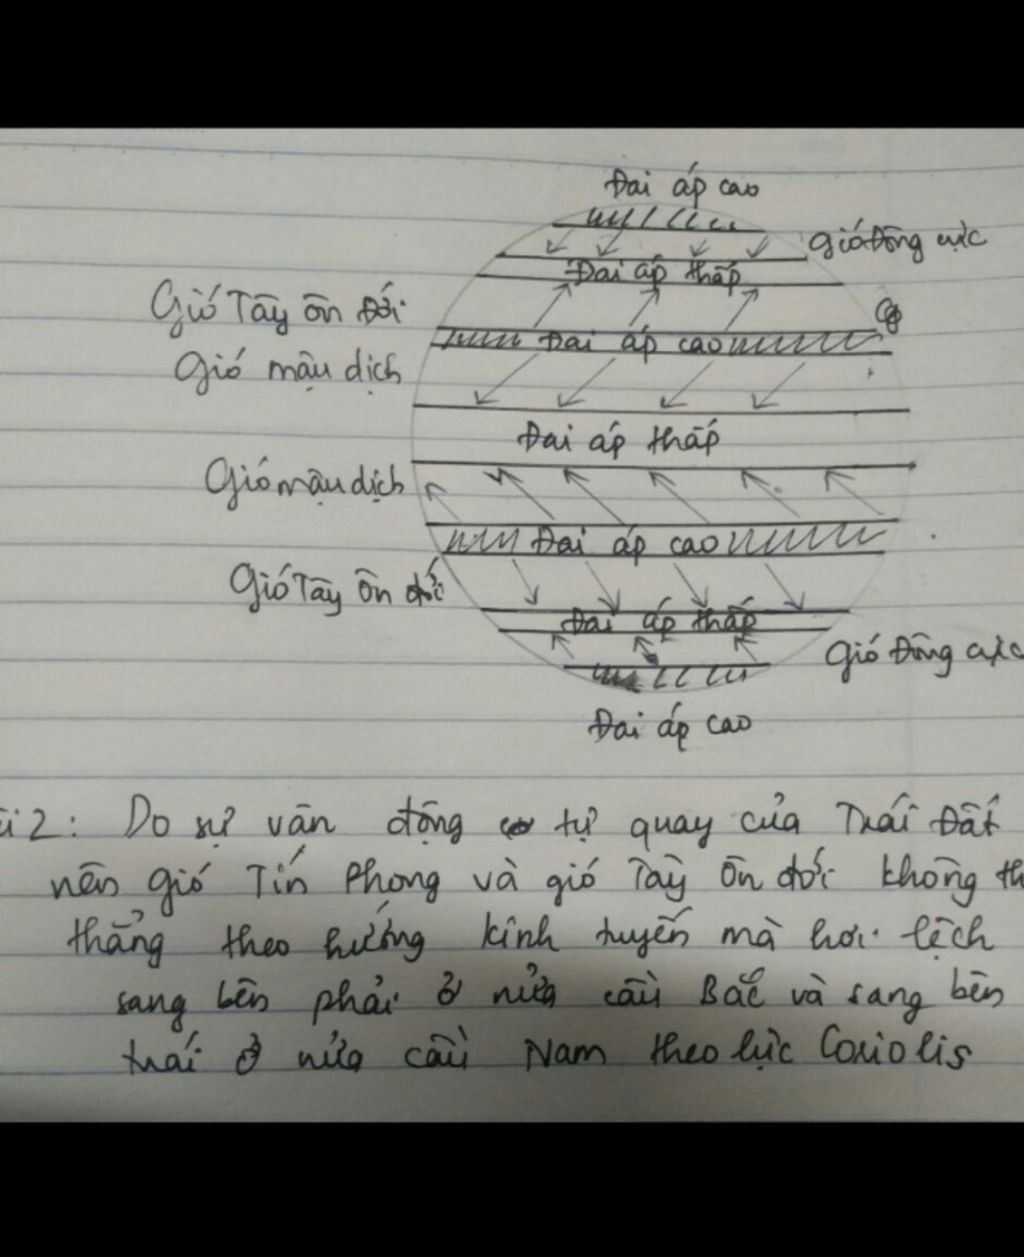 Đai áp cao
gió Đông cực
Đai áp thấp
Gió Tây ôn Đới
Đai áp cao
Gió mậu dịch
Đai áp thấp
Gió mậu dịch
Đai áp cao
Gió Tây ôn đới
Đai áp thấp
Gió Đông cực
Đai áp cao
2: Do sự vân động tự quay của Trái Đất
nên gió Tín Phong và gió Tây Ôn đới không
thẳng theo hướng kinh tuyến mà hơi lệch
sang bên phải ở nửa cầu Bắc và sang bên
trái ở nửa cầu Nam theo lực Coriolis